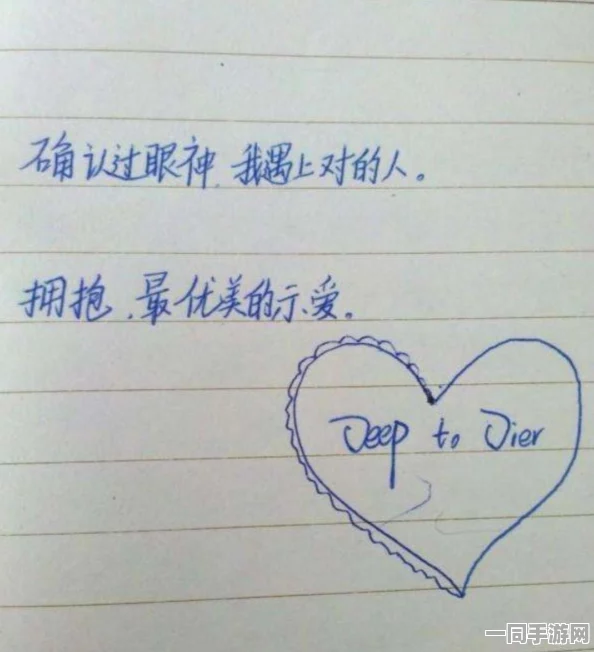 确认过眼神,我遇上对的人。
拥抱,最优美的示爱。
Deep to Dier
一同手游网